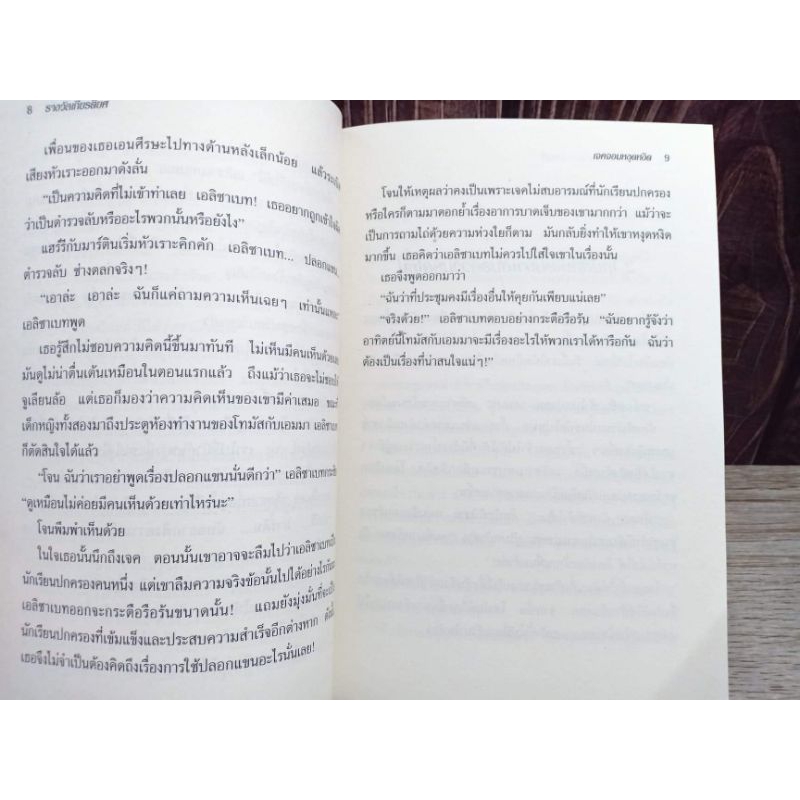 8 รางวัลเกียรติยศ
เพื่อนของเธอเอนศีรษะไปทางด้านหลังเล็กน้อย แล้วระเบิด
เสียงหัวเราะออกมาดังลั่น
“เป็นความคิดที่ไม่เข้าท่าเลย เอลิซาเบท! เธออยากถูกเข้าใจ
ว่าเป็นตำรวจลับหรืออะไรพวกนั้นหรือยังไง”
แฮร์รีกับมาร์ตินเริ่มหัวเราะคิกคัก เอลิซาเบท... ปลอกแขน...
ตำรวจลับ ช่างตลกจริงๆ!
“เอาล่ะ เอาล่ะ ฉันก็แค่ถามความเห็นเฉยๆ เท่านั้น
เอลิซาเบทพูด
เธอรู้สึกไม่ชอบความคิดนี้ขึ้นมาทันที ไม่เห็นมีคนเห็นด้วย
มันดูไม่น่าตื่นเต้นเหมือนในตอนแรกแล้ว ถึงแม้ว่าเธอจะไม่ชอบ
จูเลียนล้อ แต่เธอก็มองว่าความคิดเห็นของเขามีค่าเสมอ
เด็กหญิงทั้งสองมาถึงประตูห้องทำงานของโทมัสกับเอมมา เอลิซาเบท
ก็ตัดสินใจได้แล้ว
“โจน ฉันว่าเราอย่าพูดเรื่องปลอกแขนนั่นดีกว่า” เอลิซาเบทกระซิบ
“ดูเหมือนไม่ค่อยมีคนเห็นด้วยเท่าไหร่นะ”
โจนพึมพำเห็นด้วย
ในใจเธอนั้นนึกถึงเจค ตอนนั้นเขาอาจจะลืมไปว่าเอลิซาเบท
นักเรียนปกครองคนหนึ่ง แต่เขาลืมความจริงข้อนั้นไปได้อย่างไร
เอลิซาเบทออกจะกระตือรือร้นขนาดนั้น! แถมยังมุ่งมั่นที่จะเป็น
นักเรียนปกครองที่เข้มแข็งและประสบความสำเร็จอีกต่างหาก
เธอจึงไม่จำเป็นต้องคิดถึงเรื่องการใช้ปลอกแขนอะไรนั่นเลย!
เจคจอมหงุดหงิด 9
โจนให้เหตุผลว่าคงเป็นเพราะเจคไม่สบอารมณ์ที่นักเรียนปกครอง
หรือใครก็ตามมาตอกย้ำเรื่องอาการบาดเจ็บของเขามากกว่า แม้ว่าจะ
เป็นการถามไถ่ด้วยความห่วงใยก็ตาม มันกลับยิ่งทำให้เขาหงุดหงิด
มากขึ้น เธอคิดว่าเอลิซาเบทไม่ควรไปใส่ใจเขาในเรื่องนั้น
เธอจึงพูดออกมาว่า
“ฉันว่าที่ประชุมคงมีเรื่องอื่นให้คุยกันเพียบแน่เลย”
“จริงด้วย!” เอลิซาเบทตอบอย่างกระตือรือร้น “ฉันอยากรู้จังว่า
อาทิตย์นี้โทมัสกับเอมมาจะมีเรื่องอะไรให้พวกเราได้หารือกัน ฉันว่า
ต้องเป็นเรื่องที่น่าสนใจแน่ๆ!”